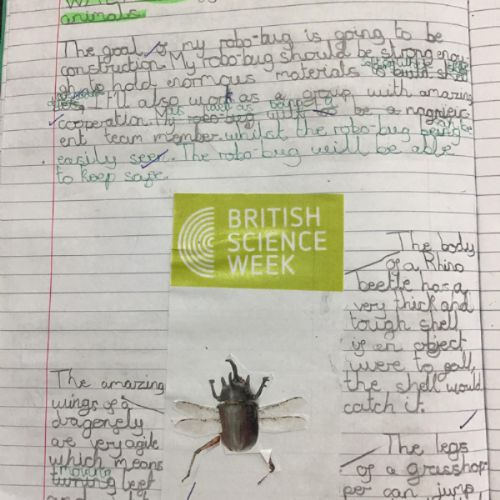 animals.
The goal of my robo-bug is going to be
construction. My robo-bug should be strong enou
gh to hold enormous materials to build
It'll also work as a group with amazing
cooperation. robo-bug will be a magnific
ent team member whilst the robo-bug being
easily seen. The robo-bug will be able
to keep safe.
BRITISH
SCIENCE
WEEK
The body
of a Rhino
beetle has a
very thick and
tough shell
if an object
were to fall,
the shell would
catch it.
The amazing
wings of a
dragonfly
are very agile
which means
turning left
The legs
of a grasshop
per can jump